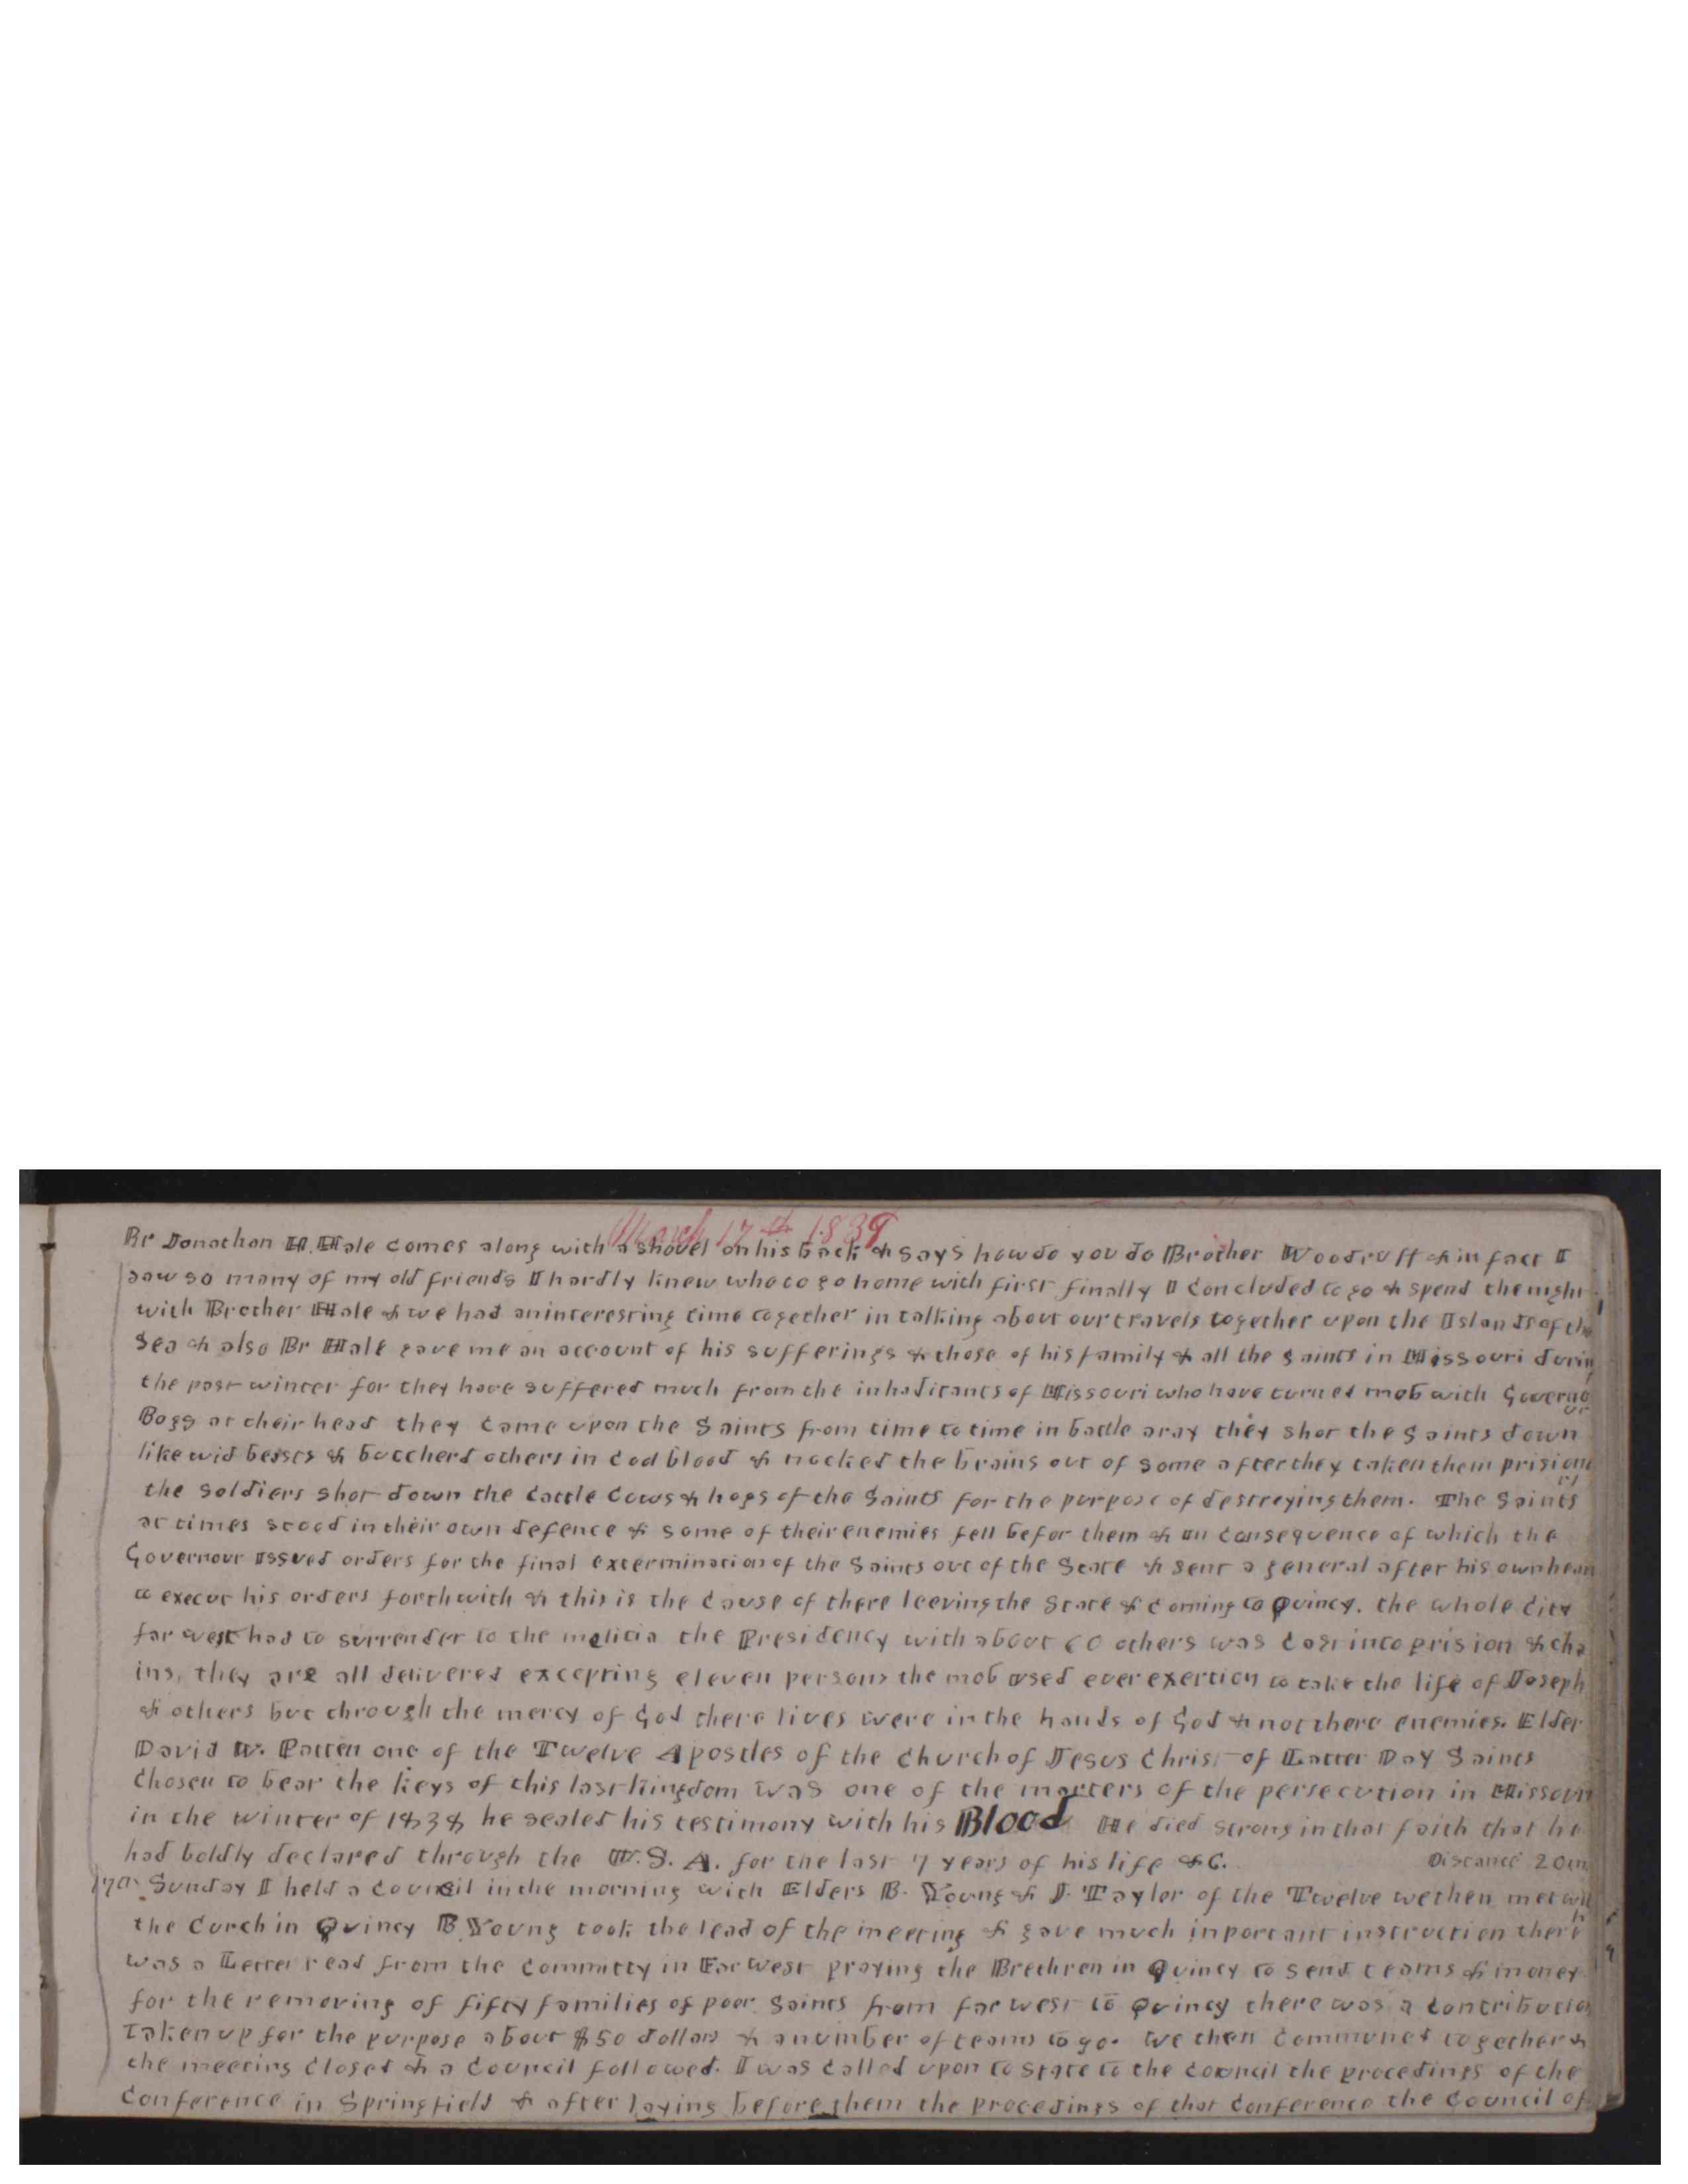 March 17th 1839
Br Jonathan H. Hale comes along with a shovel on his back & says how do you do Brother Woodruff & in fact I
saw so many of my old friends I hardly knew who to go home with first finally I concluded to go & spend the night
with Brother Hale & we had an interesting time together in talking about our travels together upon the Islands of the
Sea & also Br Hale gave me an account of his sufferings & those of his family & all the saints in Missouri during
the past winter for they have suffered much from the inhabitants of Missouri who have turned mob with Governor
Bogg at their head they came upon the Saints from time to time in battle aray they shot the Saints down
like wid beasts & butcherd others in cool blood & nocked the brains out of some after they taken them prisioners
the soldiers shot down the cattle cows & hogs of the Saints for the purpose of destroying them. The Saints
at times stood in their own defence & some of their enemies fell befor them & in consequence of which the
Governour Issued orders for the final extermination of the Saints out of the State & sent a general after his own heart
to execut his orders forthwith & this is the cause of there leeving the State & coming to Quincy. the whole city
far west had to surrender to the melitia the Presidency with about 60 others was cast into prision & cha
ins, they are all delivered excepting eleven persons the mob used ever exertion to take the life of Joseph
& others but through the mercy of God there lives were in the hands of God & not there enemies. Elder
David W. Patten one of the Twelve Apostles of the Church of Jesus Christ of Latter Day Saints
Chosen to bear the keys of this last kingdom was one of the marters of the persecution in Missouri
in the winter of 1838 he sealed his testimony with his Blood He died strong in that faith that he
had boldly declared through the U.S.A. for the last 7 years of his life &c. Distance 20 m
17th Sunday I held a council in the morning with Elders B. Young & J. Taylor of the Twelve we then met with
the Curch in Quincy B Young took the lead of the meeting & gave much inportant instruction there
was a Letter read from the Committy in Far West praying the Brethren in Quincy to send teams & money
for the removing of fifty families of poor Saints from far west to Quincy there was a contribution
Taken up for the purpose about $50 dollars & a number of teams to go. We then communed together &
the meeting closed & a council followed. I was called upon to state to the council the procedings of the
Conference in Springfield & after laying before them the procedings of that Conference the Council of